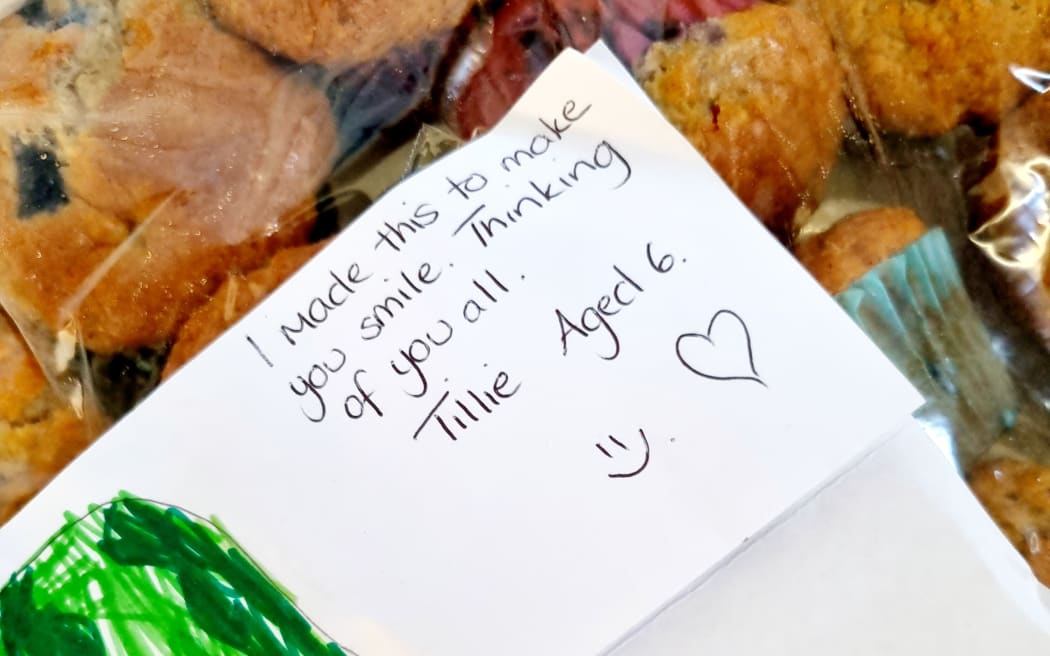 I made this to make
you smile. Thinking
of you all.
Tillie Aged 6.